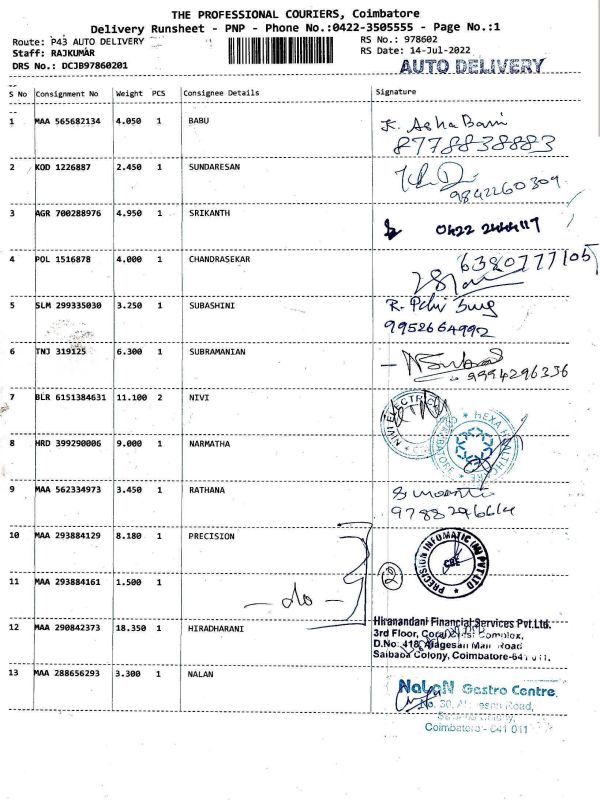 THE PROFESSIONAL COURIERS, Coimbatore
Delivery Runsheet - PNP - Phone No.:0422-3505555 - Page No.:1
Route: P43 AUTO DELIVERY
RS No.: 978602
Staff: RAJKUMAR
RS Date: 14-Jul-2022
DRS No.: DCJB97860201
AUTO DELIVERY
S No Consignment No Weight PCS Consignee Details Signature
1 MAA 565682134 4.050 1 BABU
8778838883
2 KOD 1226887 2.450 1 SUNDARESAN
9842260309
3 AGR 700288976 4.950 1 SRIKANTH
0422 2444117
4 POL 1516878 4.000 1 CHANDRASEKAR
6380777105
5 SLM 299335030 3.250 1 SUBASHINI
9952664992
6 TNJ 319125 6.300 1 SUBRAMANIAN
9994296336
7 BLR 6151384631 11.100 2 NIVI
NIVI ELECTRIC
HEXA HEALTHCARE
8 HRD 399290006 9.000 1 NARMATHA
9 MAA 562334973 3.450 1 RATHANA
9788296614
10 MAA 293884129 8.180 1 PRECISION
PRECISION INFOMATIC (M) PVT LTD
CBE
11 MAA 293884161 1.500 1
- do -
2
12 MAA 290842373 18.350 1 HIRADHARANI
Hiranandani Financial Services Pvt.Ltd.
3rd Floor, Complex,
D.No: 418, Alagesan Main Road
Saibaba Colony, Coimbatore-641 011.
13 MAA 288656293 3.300 1 NALAN
NaLaN Gastro Centre,
No. 30, Road,
Colony,
Coimbatore - 641 011